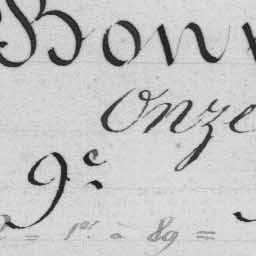 Bon
onze
9e
= 1er à 89 =